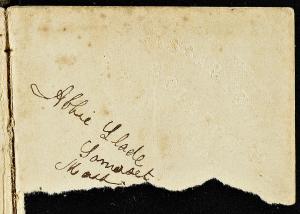 Abbie Slade
Somerset
Mass